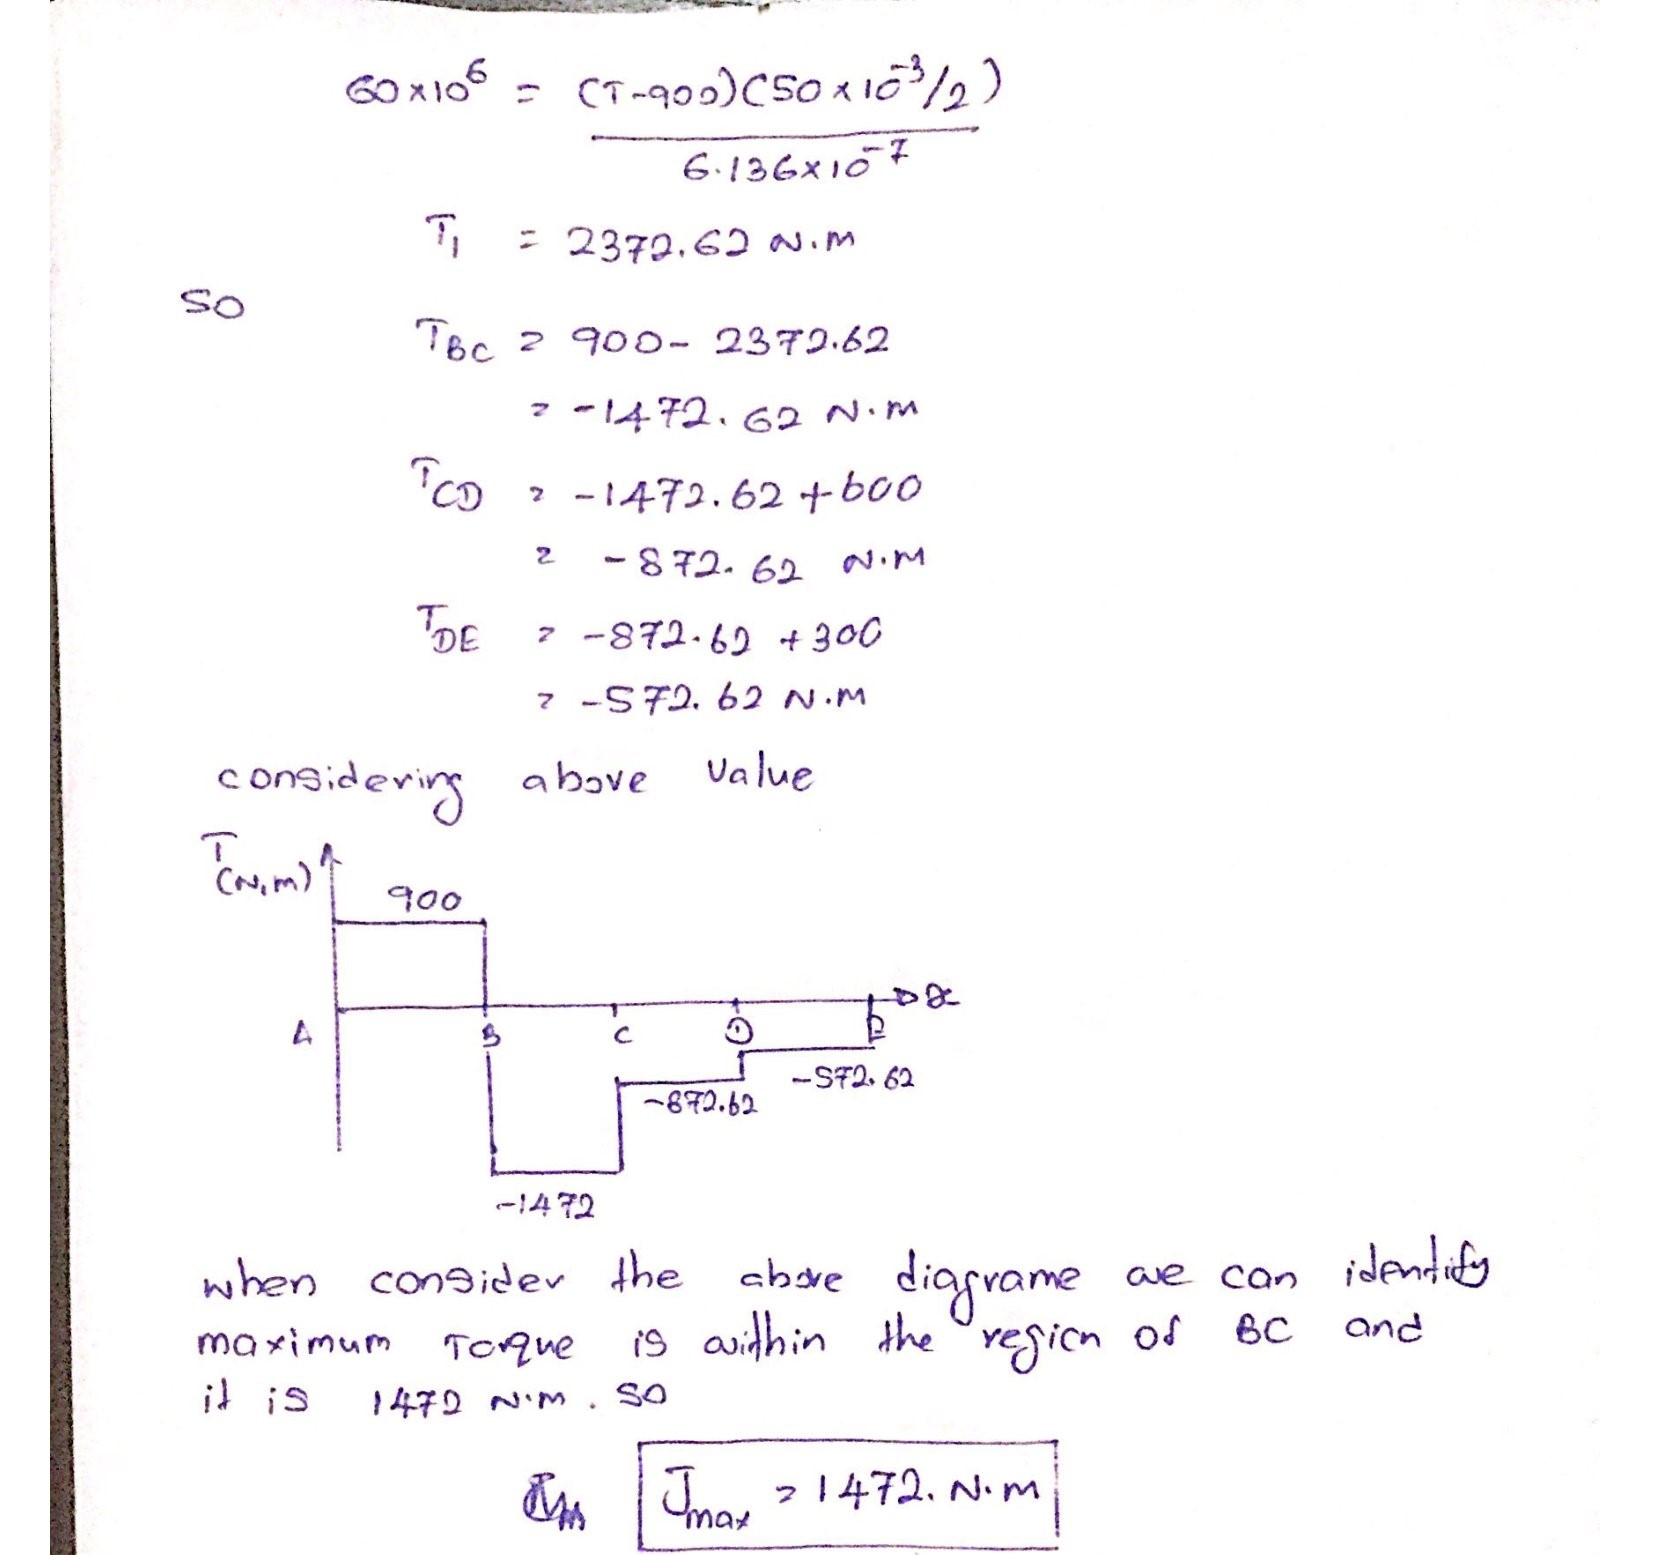 60×10⁶ = (T-900)(50×10⁻³/2)
6.136×10⁻⁷
T₁ = 2372.62 N.m
so
T_BC = 900- 2372.62
= -1472.62 N.m
T_CD = -1472.62 +600
= -872.62 N.m
T_DE = -872.62 +300
= -572.62 N.m
considering above value
T
(N.m)
900
x
A B C D E
-572.62
-872.62
-1472
when consider the above diagrame we can identify
maximum Torque is within the region of BC and
it is 1472 N.m. so
J_max = 1472. N.m